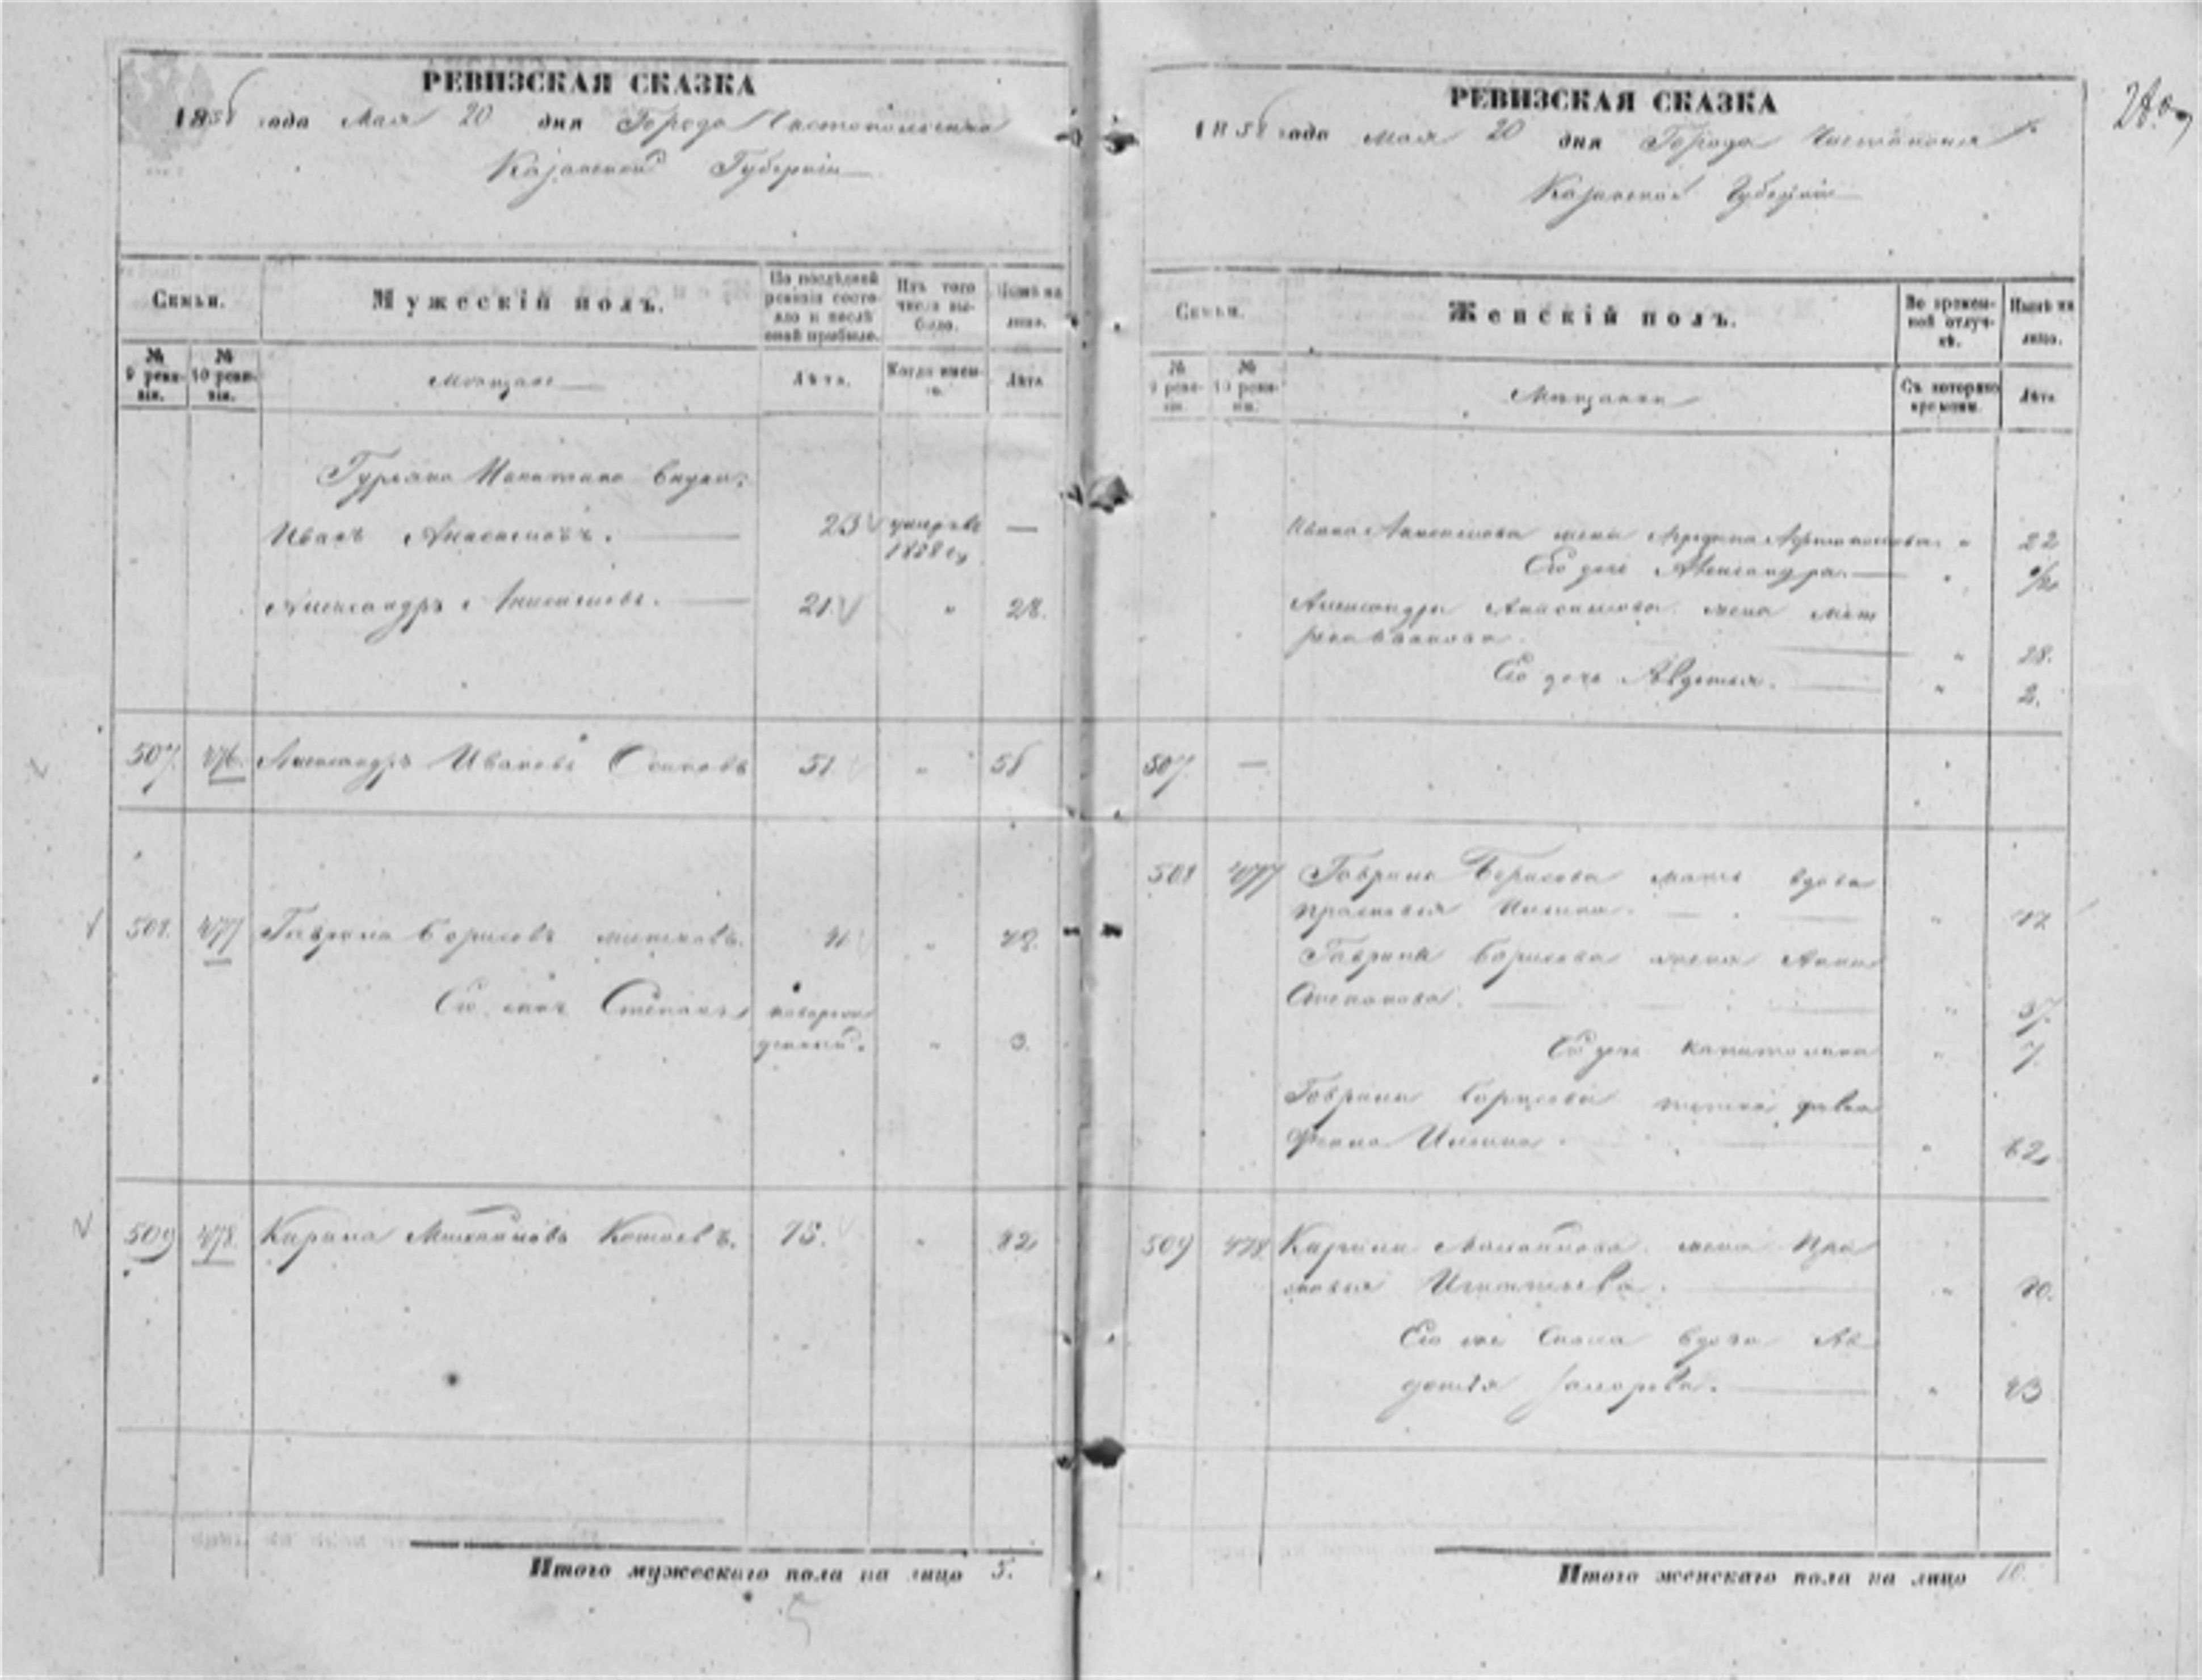 РЕВИЗСКАЯ СКАЗКА
1858 года Мая 20 дня Города Чистопольскаго
Казанской Губернии
Семьи.
Мужескій полъ.
По послѣдней ревизіи состояло и послѣ оной прибыло.
Изъ того числа выбыло.
Нынѣ на лицо.
№ 9 ревизіи.
№ 10 ревизіи.
Мѣщане
Лѣта.
Когда именно.
Лѣта
Гурьяна Никитина внуки:
Иванъ Анисимовъ. 23 умеръ въ —
1858 г,
Александръ Анисимовъ. 21. " 28.
507. 476. Александръ Ивановъ Осиповъ 51. " 58
508. 477 Гаврила Борисовъ 41 " 48.
Его сынъ Степанъ новорож
денный. " 3.
509 478. Кирила Михайловъ 75. " 82
Итого мужескаго пола на лицо 5.
РЕВИЗСКАЯ СКАЗКА
1858 года Мая 20 дня Города Чистополя
Казанской Губерніи
28
Семьи.
Женскій полъ.
Во временной отлучкѣ.
Нынѣ на лицо.
№ 9 ревизіи.
№ 10 ревизіи.
Мѣщанки
Съ котораго времени.
Лѣта
Ивана Анисимова жена " 22
Его дочь Александра. "
Александра Анисимова жена Мат
рена Иванова " 28.
Его дочь Авдотья. " 2.
507. —
508 477 Гаврила Борисова мать вдова
Прасковья Ильина. "
Гаврила Борисова жена Анна
Степанова. " 37.
Его дочь Капитолина " 7.
Гаврила Борисова тетка девка
Ильина. " 62
509 478 Кирила Михайлова жена Пра
сковья Игнатьева. " 70.
Его же сноха вдова Ав
дотья " 43
Итого женскаго пола на лицо 10.